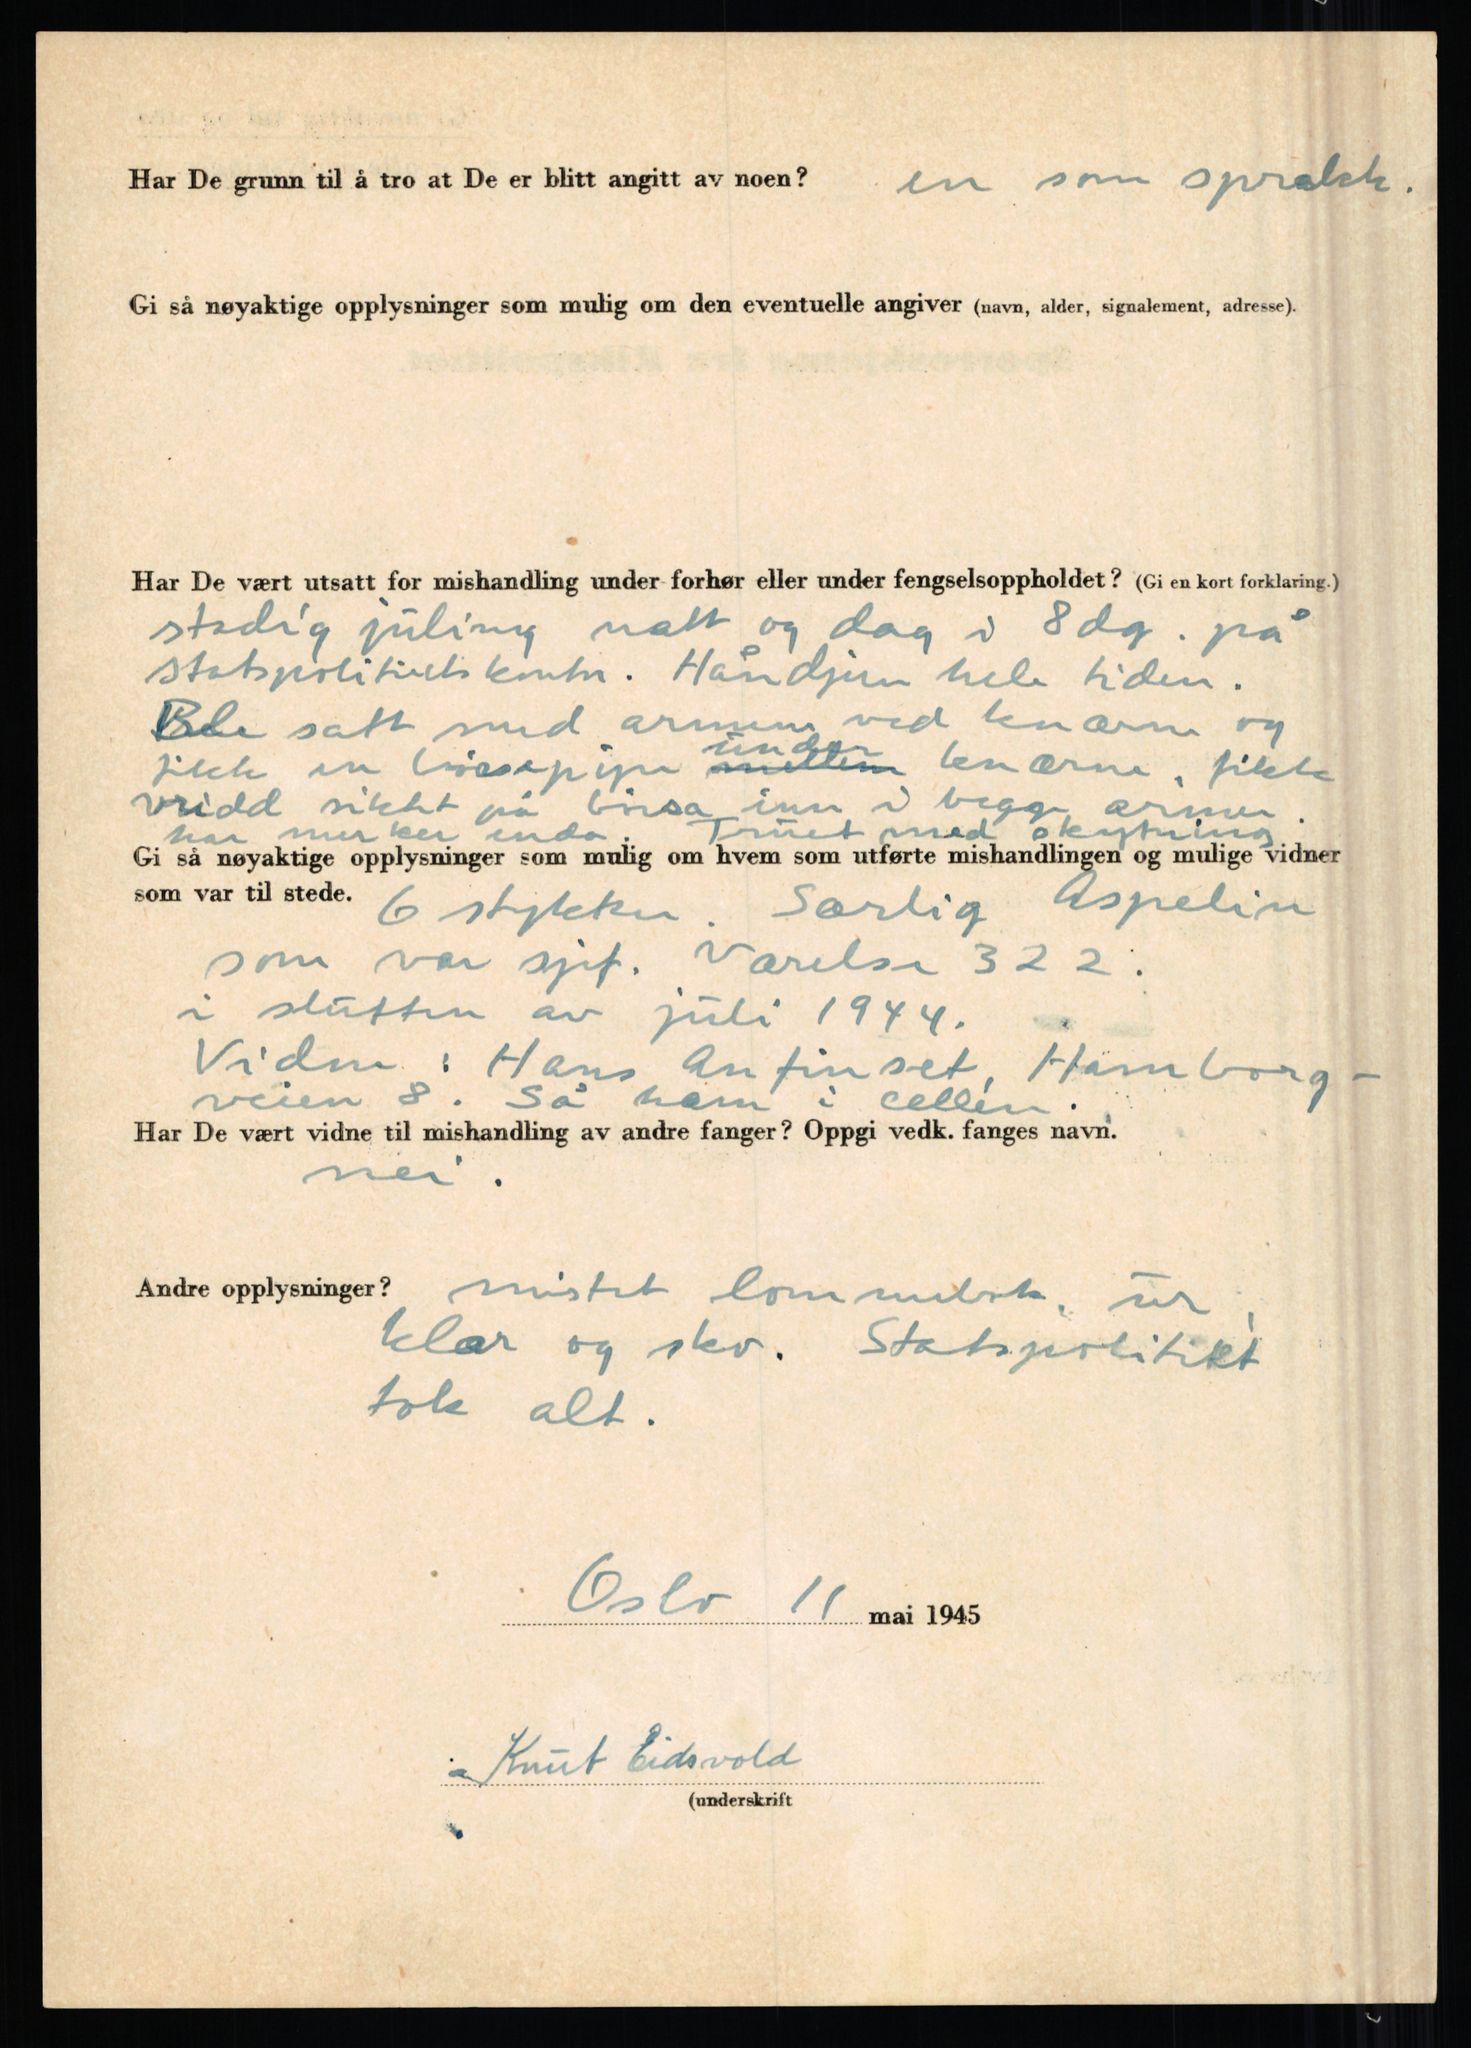 Har De grunn til å tro at De er blitt angitt av noen? en som sprakk.
Gi så nøyaktige opplysninger som mulig om den eventuelle angiver (navn, alder, signalement, adresse).
Har De vært utsatt for mishandling under forhør eller under fengselsoppholdet? (Gi en kort forklaring.)
stadig juling natt og dag i 8 dg. på
statspolitietskontor. Håndjern hele tiden.
Ble satt med armene ved knærne og
fikk en børsepipe mellem under knærne, fikk
vridd siktet på børsa inn i begge armer.
har merker enda. Truet med skytning
Gi så nøyaktige opplysninger som mulig om hvem som utførte mishandlingen og mulige vidner
som var til stede. 6 stykker. Særlig Aspelin
som var sjef. Værelse 322.
i slutten av juli 1944.
Vidne: Hans Anfinset, Hamborg-
veien 8. Så ham i cellen.
Har De vært vidne til mishandling av andre fanger? Oppgi vedk. fanges navn.
nei.
Andre opplysninger? mistet lommebok, ur,
klær og sko. Statspolitiet
tok alt.
Oslo 11 mai 1945
Knut Eidsvold
(underskrift